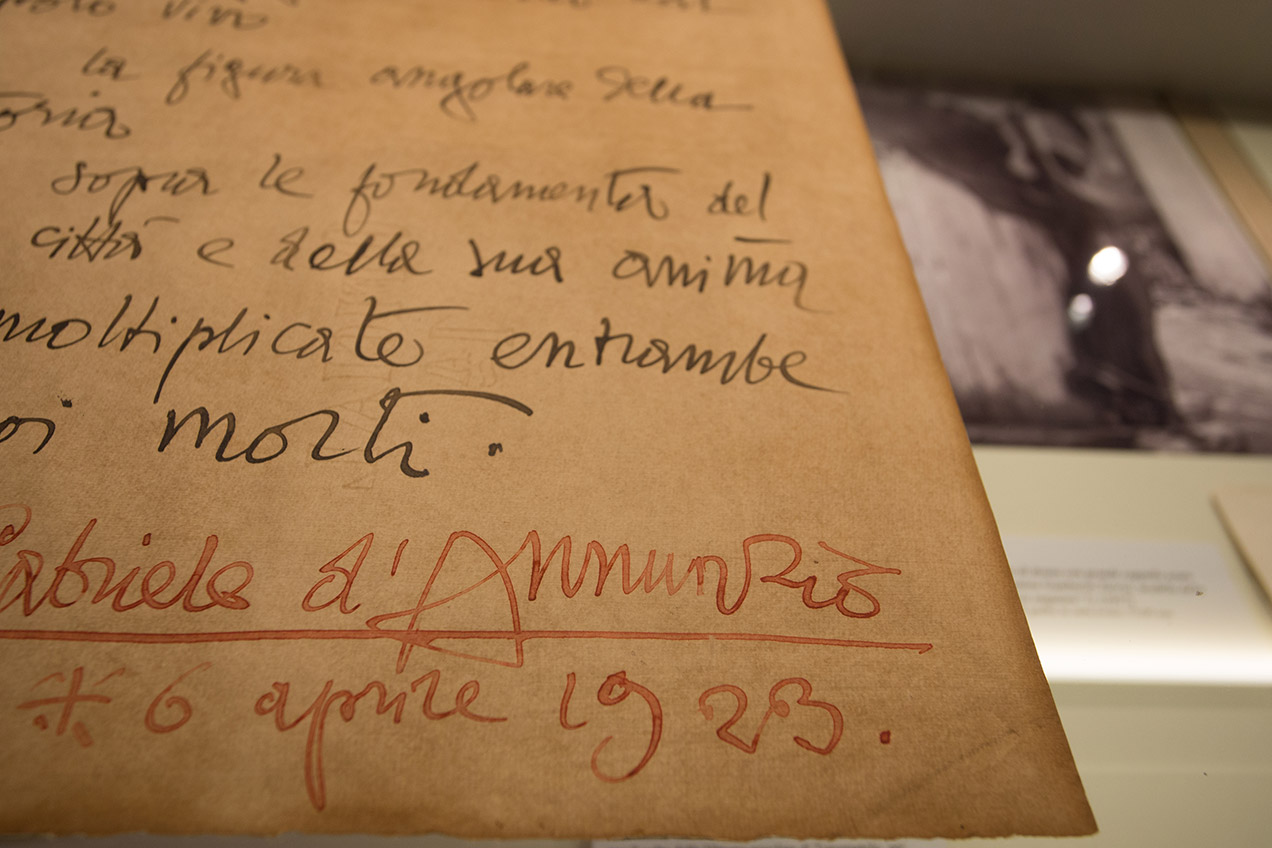 vivo
la figura angolare della
toria
sopra le fondamenta del
città e della sua anima
moltiplicate entrambe
oi morti.
Gabriele d'Annunziò
* 6 aprile 1923.